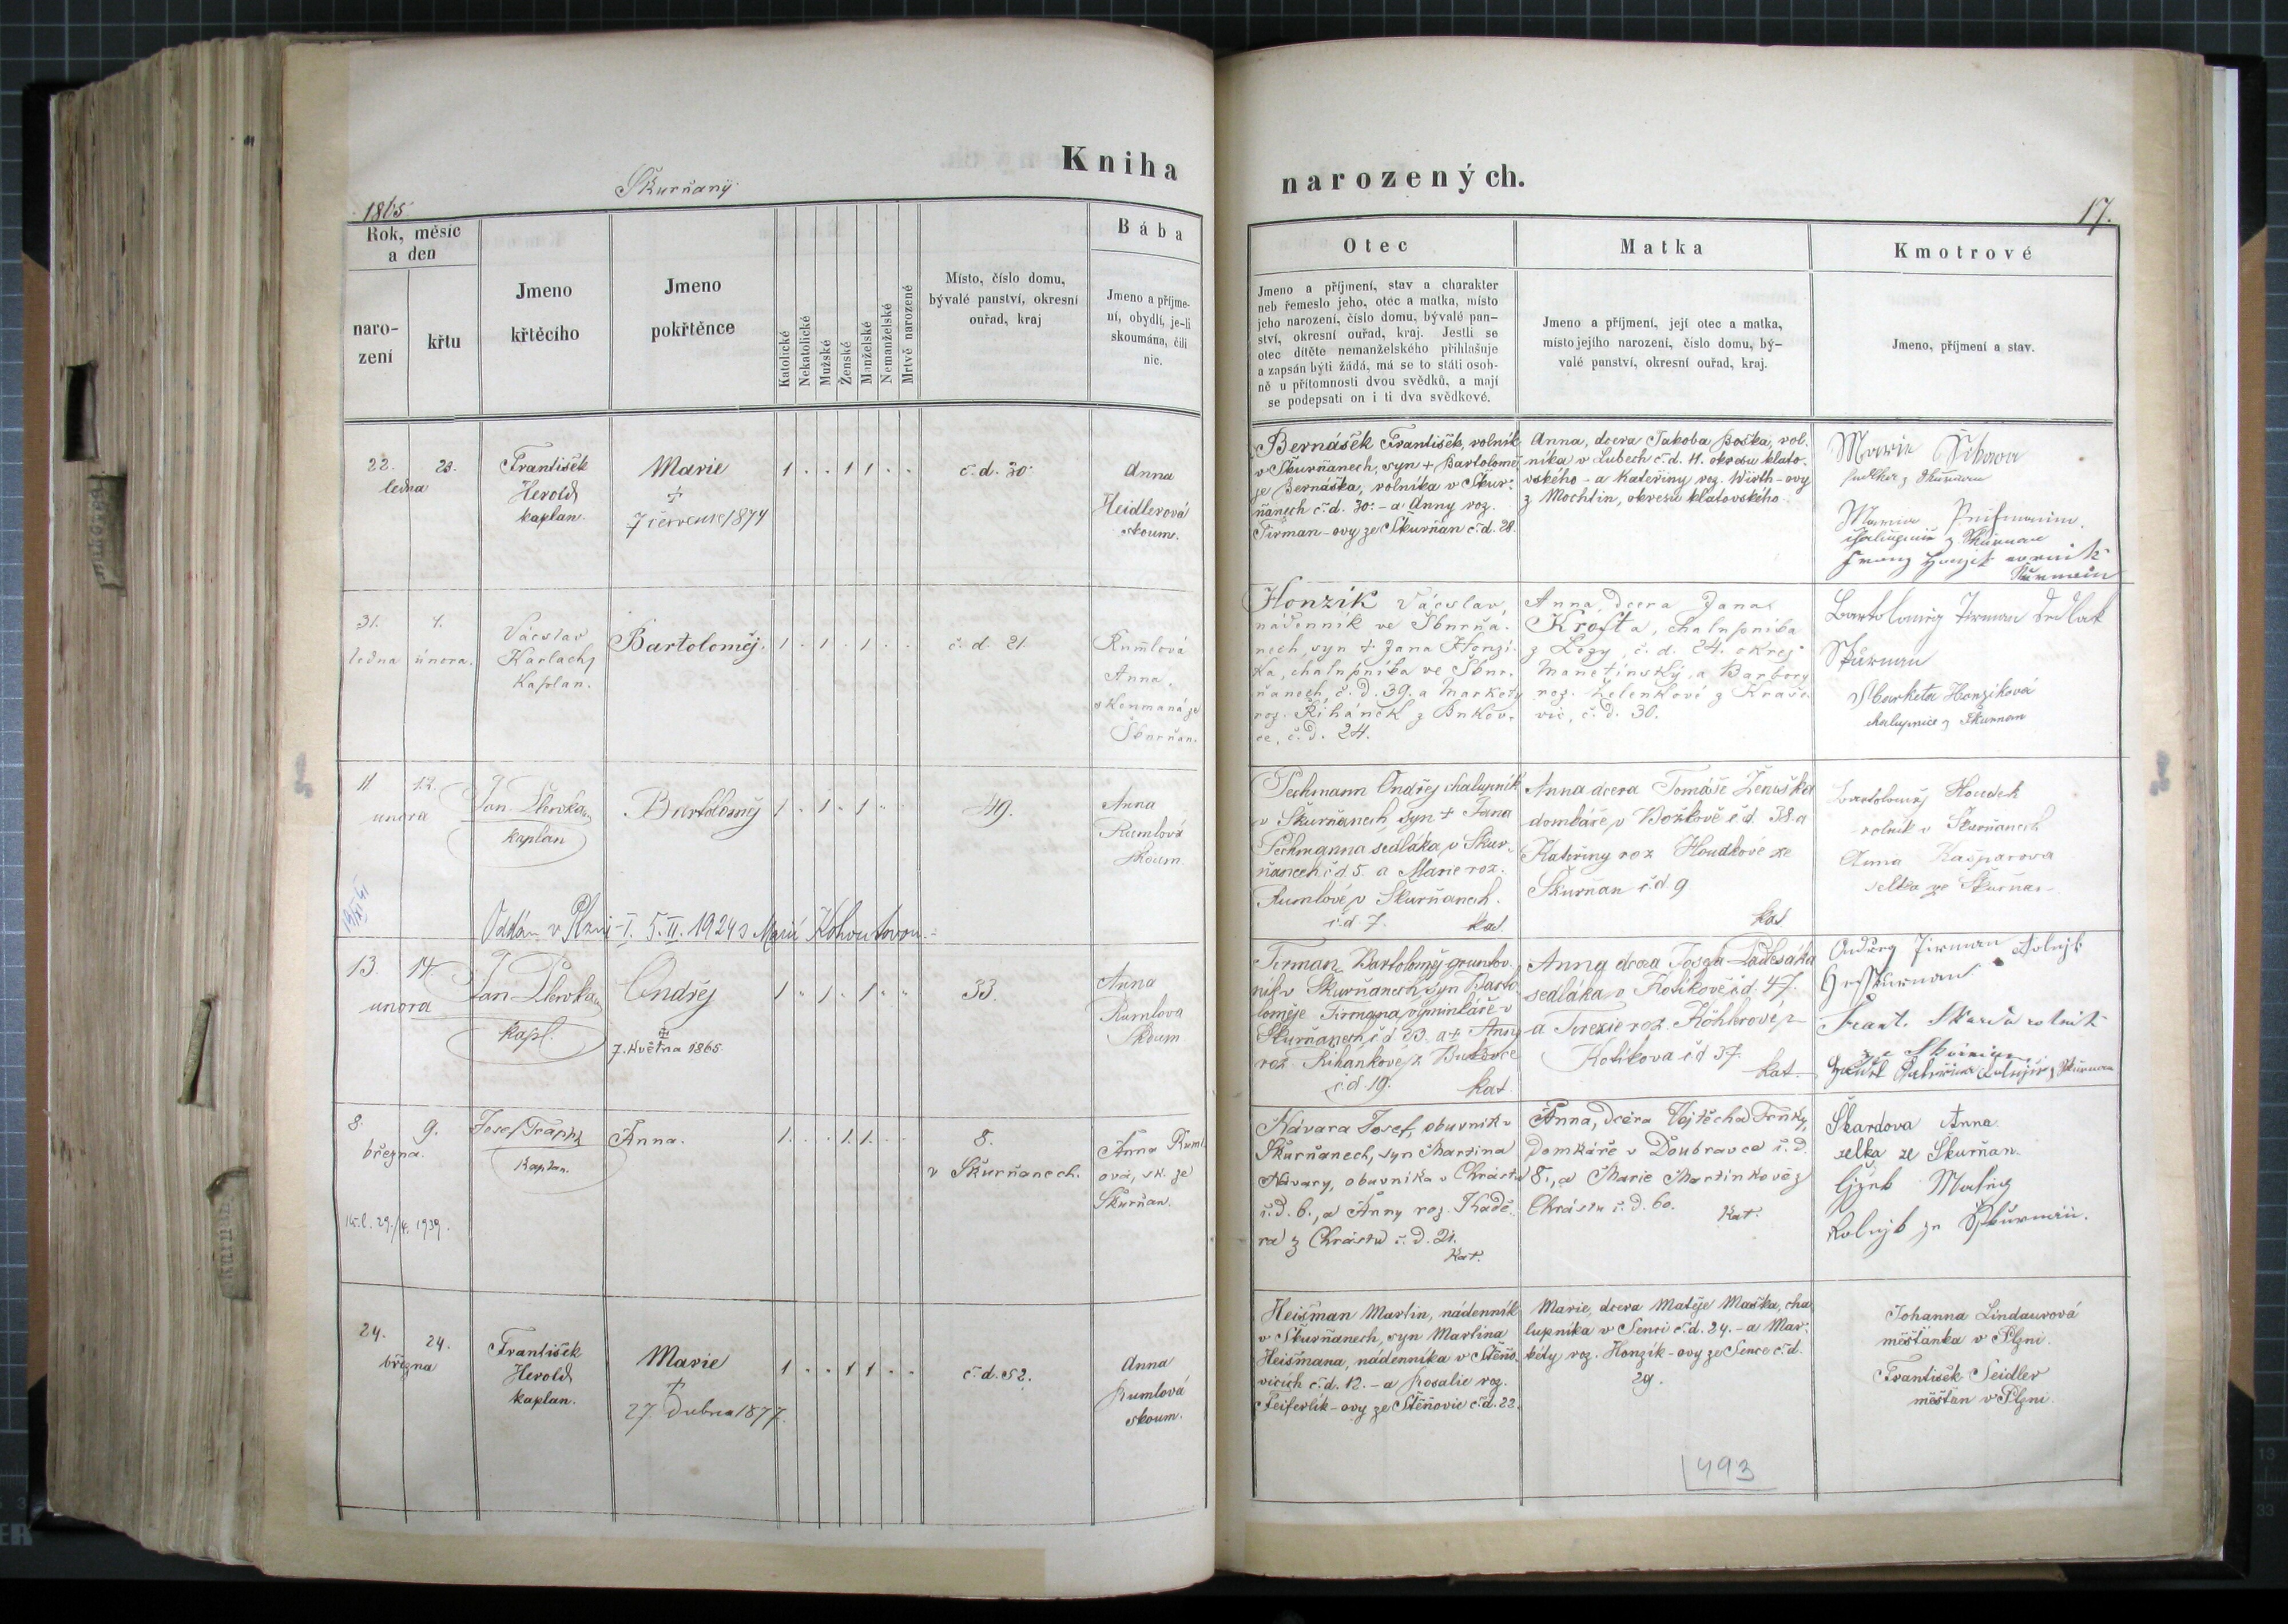 Kniha
narozených.
Škurňaný
1865
17.
Rok, měsíc
a den
naro-
zení
křtu
Jmeno
křtěcího
Jmeno
pokřtěnce
Katolické
Nekatolické
Mužské
Ženské
Manželské
Nemanželské
Mrtvě narozené
Místo, číslo domu,
bývalé panství, okresní
ouřad, kraj
Bába
Jmeno a příjme-
ní, obydlí, je-li
skoumána, čili
nic.
Otec
Jmeno a příjmení, stav a charakter
neb řemeslo jeho, otec a matka, místo
jeho narození, číslo domu, bývalé pan-
ství, okresní ouřad, kraj. Jestli se
otec dítěte nemanželského přihlašuje
a zapsán býti žádá, má se to státi osob-
ně u přítomnosti dvou svědků, a mají
se podepsati on i ti dva svědkové.
Matka
Jmeno a příjmení, její otec a matka,
místo jejího narození, číslo domu, bý-
valé panství, okresní ouřad, kraj.
Kmotrové
Jmeno, příjmení a stav.
22. 23.
ledna
František
Herold
kaplan.
Marie
+
7 července 1874
1 . . 1 1 . .
č. d. 30
Anna
Heidlerová
skoum.
Bernášek František, rolník
v Škurňanech, syn + Bartolomě-
je Bernáška, rolníka v Škur-
ňanech č. d. 30. - a Anny roz.
Tirman-ovy ze Škurňan č. d. 28.
Anna, dcera Jakoba Boška, rol-
níka v Lubech č. d. 11. okresu klato-
vského - a Kateřiny roz. Wirth-ovy
z Mochtín, okresu klatovského.
Marie
31. 1.
ledna února.
Václav
Karlach,
Kaplan.
Bartoloměj.
1 . 1 . 1 . .
č. d. 21.
Rumlová
Anna.
skoumaná ze
Škurňan.
Honzík Václav,
nádenník ve Škurňa-
nech, syn + Jana Honzí-
ka, chalupníka ve Škur-
ňanech, č. d. 39. a Markety
roz. Řihánek z Bukov-
ce, č. d. 24.
Anna, dcera Jana
Krofta, chalupníka
z Lozy, č. d. 24. okres
Manetínský, a Barbory
roz. Zelenkové z Kraso-
vic, č. d. 30.
Bartolomig Tirman Sedlak
Skurnan
Marketa Honzíková
chalupnice z Skurnan
11 12.
února
Jan Plevka
kaplan
Bartoloměj
1 . 1 . 1 . .
49.
Anna
Rumlová
skoum
Oddán v Plzni-I. 5. II. 1924 s Marií Kohoutovou.
Pechmann Ondřej chalupník
v Škurňanech, syn + Jana
Pechmanna sedláka v Škur-
ňanech č. d. 5. a Marie roz.
Rumlové v Škurňanech.
č. d. 7. kat.
Anna dcera Tomáše Ženíška
domkáře v Božkově č. d. 38. a
Kateřiny roz Houdkové ze
Škurňan č. d. 9
kat
Bartoloměj Houdek
rolník v Škurňanech
Anna Kašparova
selka ze Škurňan
13. 14
února
Jan Plevka
kapl.
Ondřej
7. Května 1865
1 . 1 . 1 . .
33.
Anna
Rumlova
Skoum
Tirman Bartoloměj gruntov-
ník v Škurňanech, syn Barto-
loměje Tirmana, výminkáře v
Škurňanech č. d 33. a + Anny
roz. Řihánkové z Bukovce
č. d. 19. kat
Anna dcera Josefa
sedláka v Kotíkově č. d. 47.
a Terezie roz. Köhlerové z
Kotíkova č. d 37. kat.
Ondřeg Tirman
Frant. Skarda rolnik
8. 9.
března.
Josef Trapp,
Kaplan.
Anna.
1. . . 1. 1. . .
8.
v Škurňanech.
Anna Ruml-
ová, sk. ze
Škurňan.
29./4. 1939.
Návara Josef, obuvník v
Škurňanech, syn Martina
Návary, obuvníka v Chrástu
č. d. 6., a Anny roz. Kadě-
ra z Chrástu č. d. 21.
Kat.
Anna, dcera Vojtěcha Trnky,
Domkáře v Doubravce č. d.
8., a Marie Martinkové z
Chrástu č. d. 60. Kat.
Škardova Anna.
selka ze Škurňan.
24. 24.
března
František
Herold
kaplan.
Marie
+
27. Dubna 1877.
1 . . 1 1 . .
č. d. 52.
Anna
Rumlová
skoum.
Heišman Martin, nádenník
v Škurňanech, syn Martina
Heišmana, nádenníka v Štěno-
vicích č. d. 12. - a Rosalie roz.
Feiferlík-ovy ze Štěnovic č. d. 22.
Marie, dcera Matěje Maška, cha-
lupníka v Senci č. d. 24. - a Mar-
kéty roz. Honzík-ovy ze Sence č. d.
29.
Johanna Lindaurová
měšťanka v Plzni.
František Seidler
měšťan v Plzni.
493